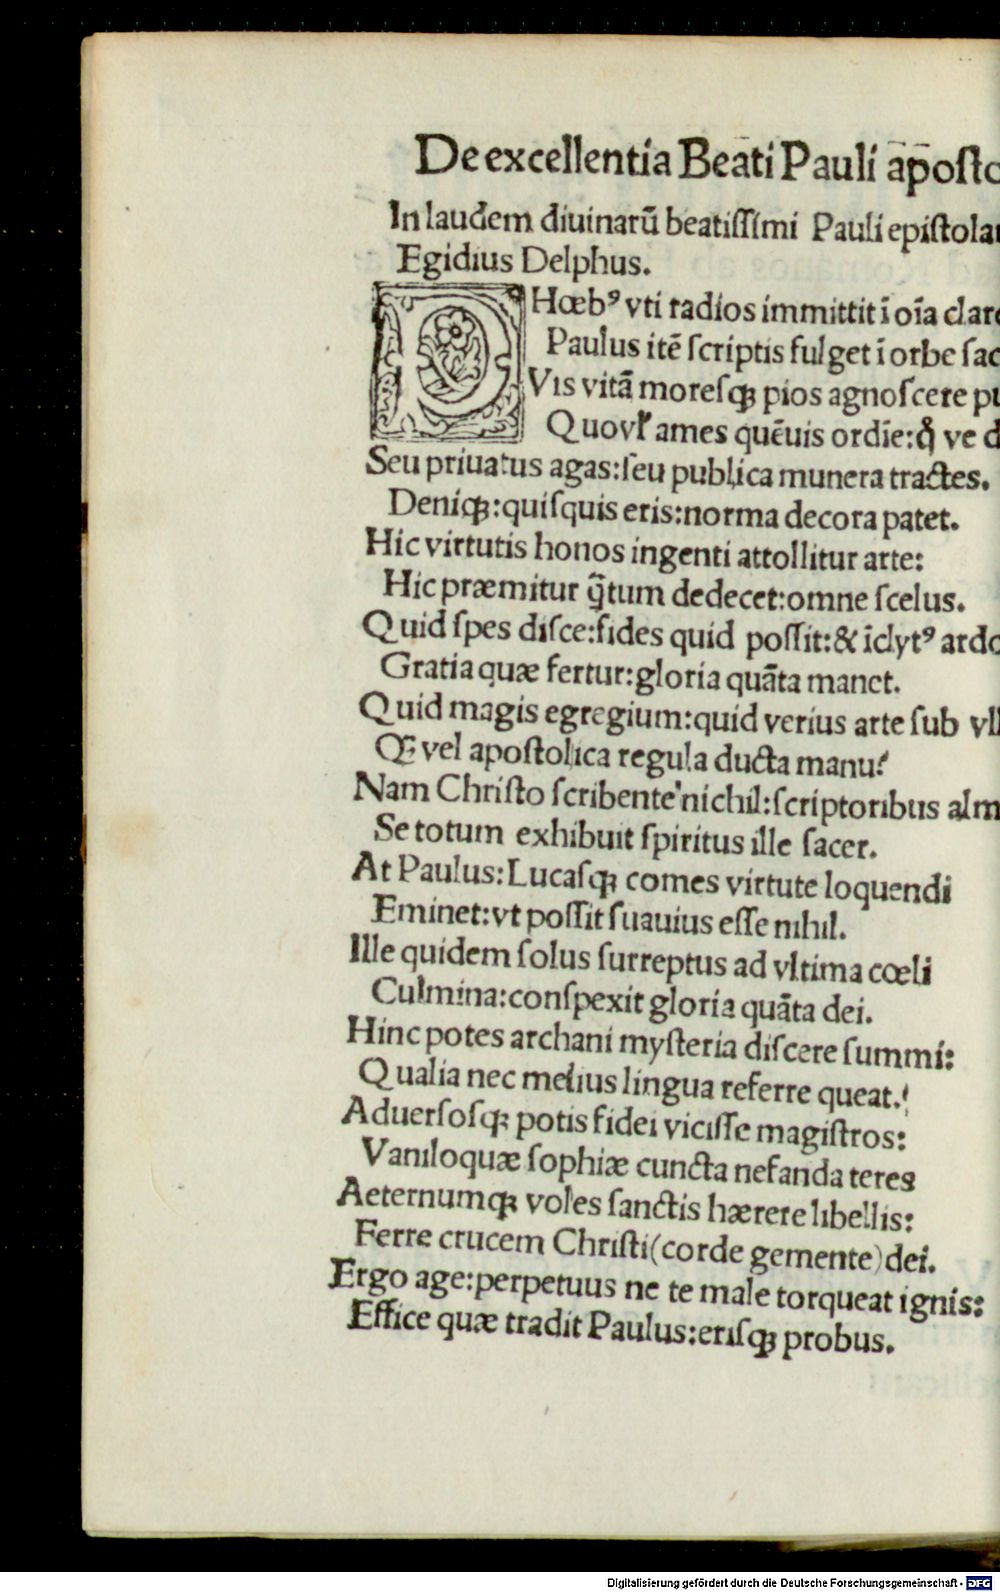 De excellentia Beati Pauli aposto
In laudem diuinarū beatiſſimi Pauli epiſtola
Egidius Delphus.
PHœbꝰ vti radios immittit ī oīa clar
Paulus itē ſcriptis fulget ī orbe ſac
Vis vitā moreſqꝫ pios agnoſcere
Quovſ ames quēuis ordīe: ve
Seu priuatus agas:ſeu publica munera tractes.
Deniqꝫ:quiſquis eris:norma decora patet.
Hic virtutis honos ingenti attollitur arte:
Hic præmitur q̄tum dedecet:omne ſcelus.
Quid ſpes diſce:fides quid poſſit:& īclytꝰ ardo
Gratia quæ fertur:gloria quāta manet.
Quid magis egregium:quid verius arte ſub vll
Qꝫ vel apoſtolica regula ducta manu?
Nam Chriſto ſcribente nichil:ſcriptoribus alm
Se totum exhibuit ſpiritus ille ſacer.
At Paulus:Lucaſqꝫ comes virtute loquendi
Eminet:vt poſſit ſuauius eſſe nihil.
Ille quidem ſolus ſurreptus ad vltima cœli
Culmina:conſpexit gloria quāta dei.
Hinc potes archani myſteria diſcere ſummi:
Qualia nec melius lingua referre queat.
Aduerſoſqꝫ potis fidei viciſſe magiſtros:
Vaniloquæ ſophiæ cuncta nefanda teres
Aeternumqꝫ voles ſanctis hærere libellis:
Ferre crucem Chriſti(corde gemente)dei.
Ergo age:perpetuus ne te male torqueat ignis:
Effice quæ tradit Paulus:eriſqꝫ probus.
Digitalisierung gefördert durch die Deutsche Forschungsgemeinschaft - DFG